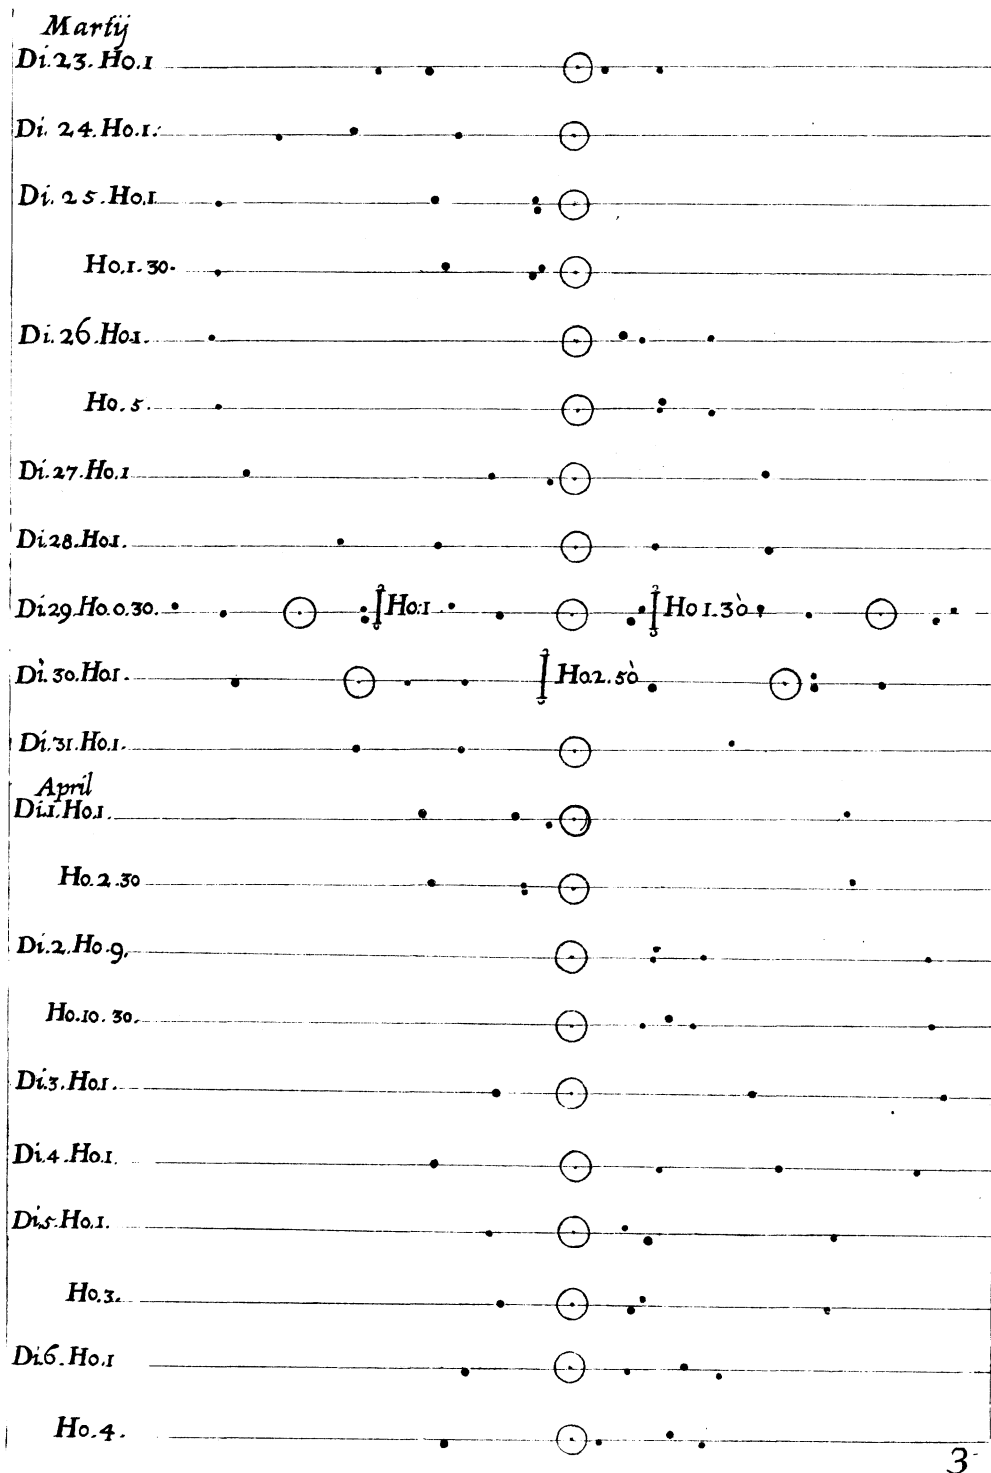 Martij
Di.23.Ho.1
Di.24.Ho.1.
Di.25.Ho.1
Ho.1.30.
Di.26.Ho.1.
Ho.5.
Di.27.Ho.1
Di.28.Ho.1.
Di.29.Ho.0.30. Ho.1 Ho 1.30
Di.30.Ho.1. Ho.2.50
Di.31.Ho.1.
April
Di.1.Ho.1.
Ho.2.30
Di.2.Ho.9.
Ho.10.30.
Di.3.Ho.1.
Di.4.Ho.1.
Di.5.Ho.1.
Ho.3.
Di.6.Ho.1
Ho.4.
3